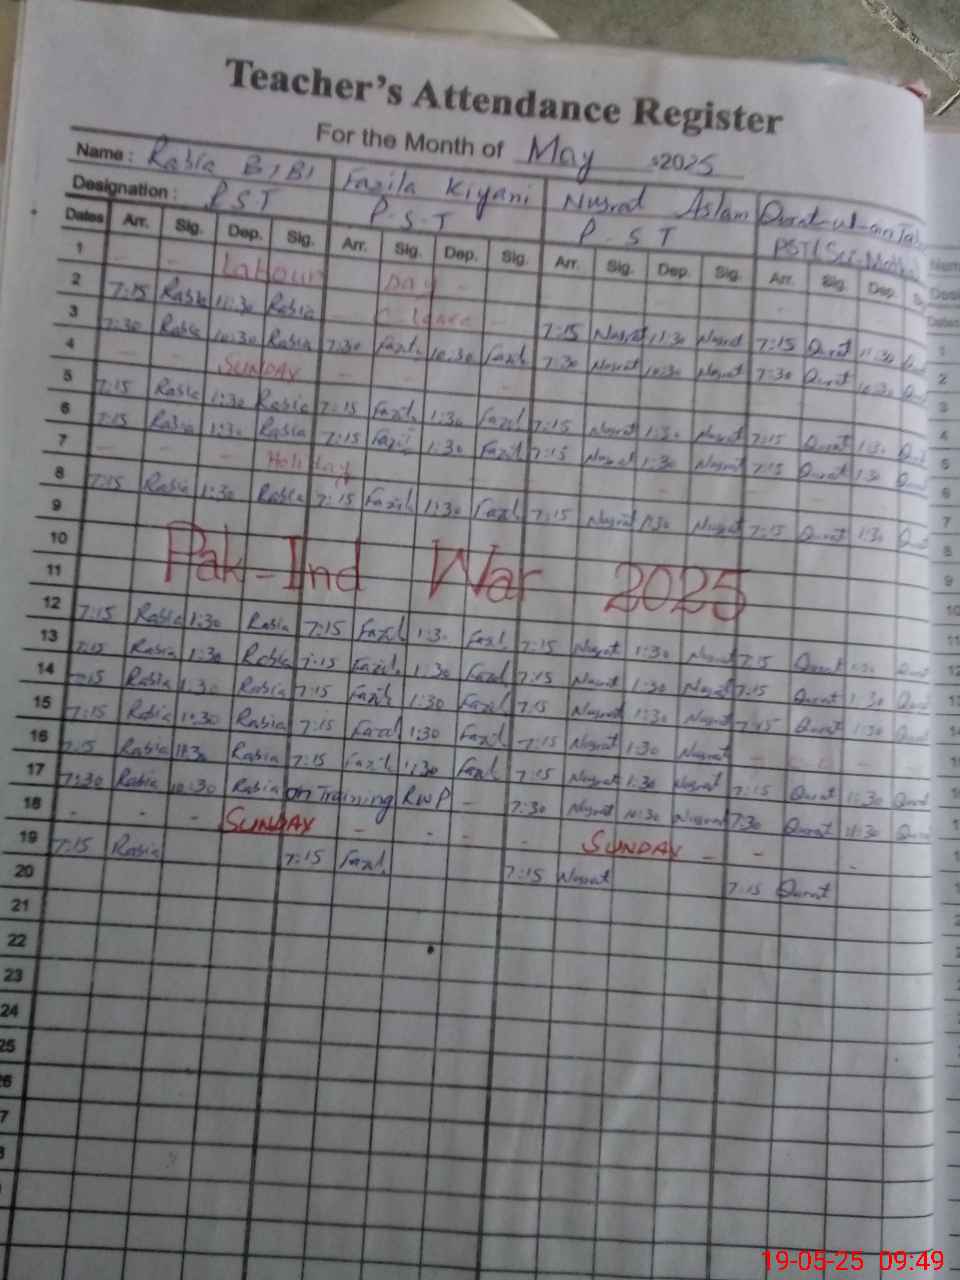 Teacher's Attendance Register
For the Month of May 2025
Name: Rabia BIBI Fazila Kiyani Nusrat Aslam Qurat-ul-an
Designation: PST P.S.T P S T PST
Dates Arr. Sig. Dep. Sig. Arr. Sig. Dep. Sig. Arr. Sig. Dep. Sig. Arr. Sig. Dep.
1 - - Labour Day -
2 7:15 Rabia 11:30 Rabia - leave - 7:15 Nusrat 11:30 Nusrat 7:15 Qurat 11:30
3 7:30 Rabia 10:30 Rabia 7:30 Fazil 10:30 Fazil 7:30 Nusrat 10:30 Nusrat 7:30 Qurat 10:30
4 - - SUNDAY - -
5 7:15 Rabia 1:30 Rabia 7:15 Fazil 1:30 Fazil 7:15 Nusrat 1:30 Nusrat 7:15 Qurat 1:30
6 7:15 Rabia 1:30 Rabia 7:15 Fazil 1:30 Fazil 7:15 Nusrat 1:30 Nusrat 7:15 Qurat 1:30
7 - - - Holiday
8 7:15 Rabia 1:30 Rabia 7:15 Fazil 1:30 Fazil 7:15 Nusrat 1:30 Nusrat 7:15 Qurat 1:30
9
10 Pak-Ind War 2025
11
12 7:15 Rabia 1:30 Rabia 7:15 Fazil 1:30 Fazil 7:15 Nusrat 1:30 Nusrat 7:15 Qurat 1:30
13 7:15 Rabia 1:30 Rabia 7:15 Fazil 1:30 Fazil 7:15 Nusrat 1:30 Nusrat 7:15 Qurat 1:30
14 7:15 Rabia 1:30 Rabia 7:15 Fazil 1:30 Fazil 7:15 Nusrat 1:30 Nusrat 7:15 Qurat 1:30
15 7:15 Rabia 1:30 Rabia 7:15 Fazil 1:30 Fazil 7:15 Nusrat 1:30 Nusrat
16 7:15 Rabia 11:30 Rabia 7:15 Fazil 11:30 Fazil 7:15 Nusrat 11:30 Nusrat 7:15 Qurat 11:30
17 7:30 Rabia 10:30 Rabia on Training RWP - 7:30 Nusrat 10:30 Nusrat 7:30 Qurat
18 - - - SUNDAY - - - - SUNDAY - - -
19 7:15 Rabia 7:15 Fazil 7:15 Nusrat 7:15 Qurat
20
21
22
23
24
25
19-05-25 09:49